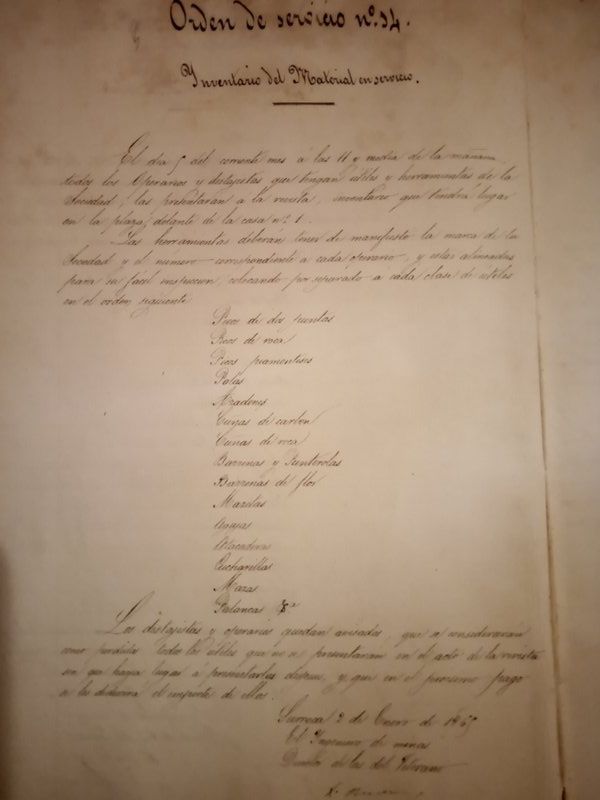 Orden de servicio nº 14.
Inventario del Material en servicio.
El dia 5 del corriente mes á las 11 y media de la mañana
todos los Operarios y distajistas que tengan utiles y herramientas de la
Sociedad, las presentaran a la revista, inventario que tendrá lugar
en la plaza, delante de la casa nº 1.
Las herramientas deberán tener de manifiesto la marca de la
Sociedad y el numero correspondiente á cada operario, y estar alineadas
para su fácil inspeccion, colocando por separado á cada clase de utiles
en el orden siguiente
Picos de dos puntas
Picos de roca
Picos piamonteses
Palas
Azadones
Cuñas de carbon
Cuñas de roca
Barrenas y Punterolas
Barrenas de flor
Mazitas
Agujas
Atacaderas
Cucharillas
Mazas
Palancas &ª
Los distajistas y operarios quedan avisados, que se considerarán
como perdidos todos los utiles que no se presentaran en el acto de la revista
sin que haya lugar á presentarlos despues, y que en el proximo pago
se les deducirá el importe de ellos.
Surroca 2 de Enero de 186
El Ingeniero de minas
Director de las del Veterano